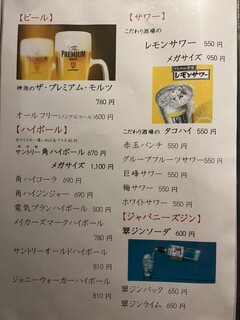 【ビール】
The PREMIUM MALT'S
神泡のザ・プレミアム・モルツ
760 円
オールフリー(ノンアルコール)600円
【ハイボール】
サントリー角ハイボール 670円
メガサイズ 1,100 円
角ハイコーラ 690円
角ハイジンジャー 690円
電気ブランハイボール 500 円
メイカーズマークハイボール
780 円
サントリーオールドハイボール
810 円
ジョニーウォーカーハイボール
810 円
【サワー】
こだわり酒場の
レモンサワー 550 円
メガサイズ 950 円
レモンサワー
こだわり酒場の タコハイ 550 円
赤玉パンチ 550 円
グループフルーツサワー550 円
巨峰サワー 550 円
梅サワー 550 円
ホワイトサワー 550 円
【ジャパニーズジン】
翠ジンソーダ 600 円
翠ジンバック 650 円
翠ジンライム 650 円